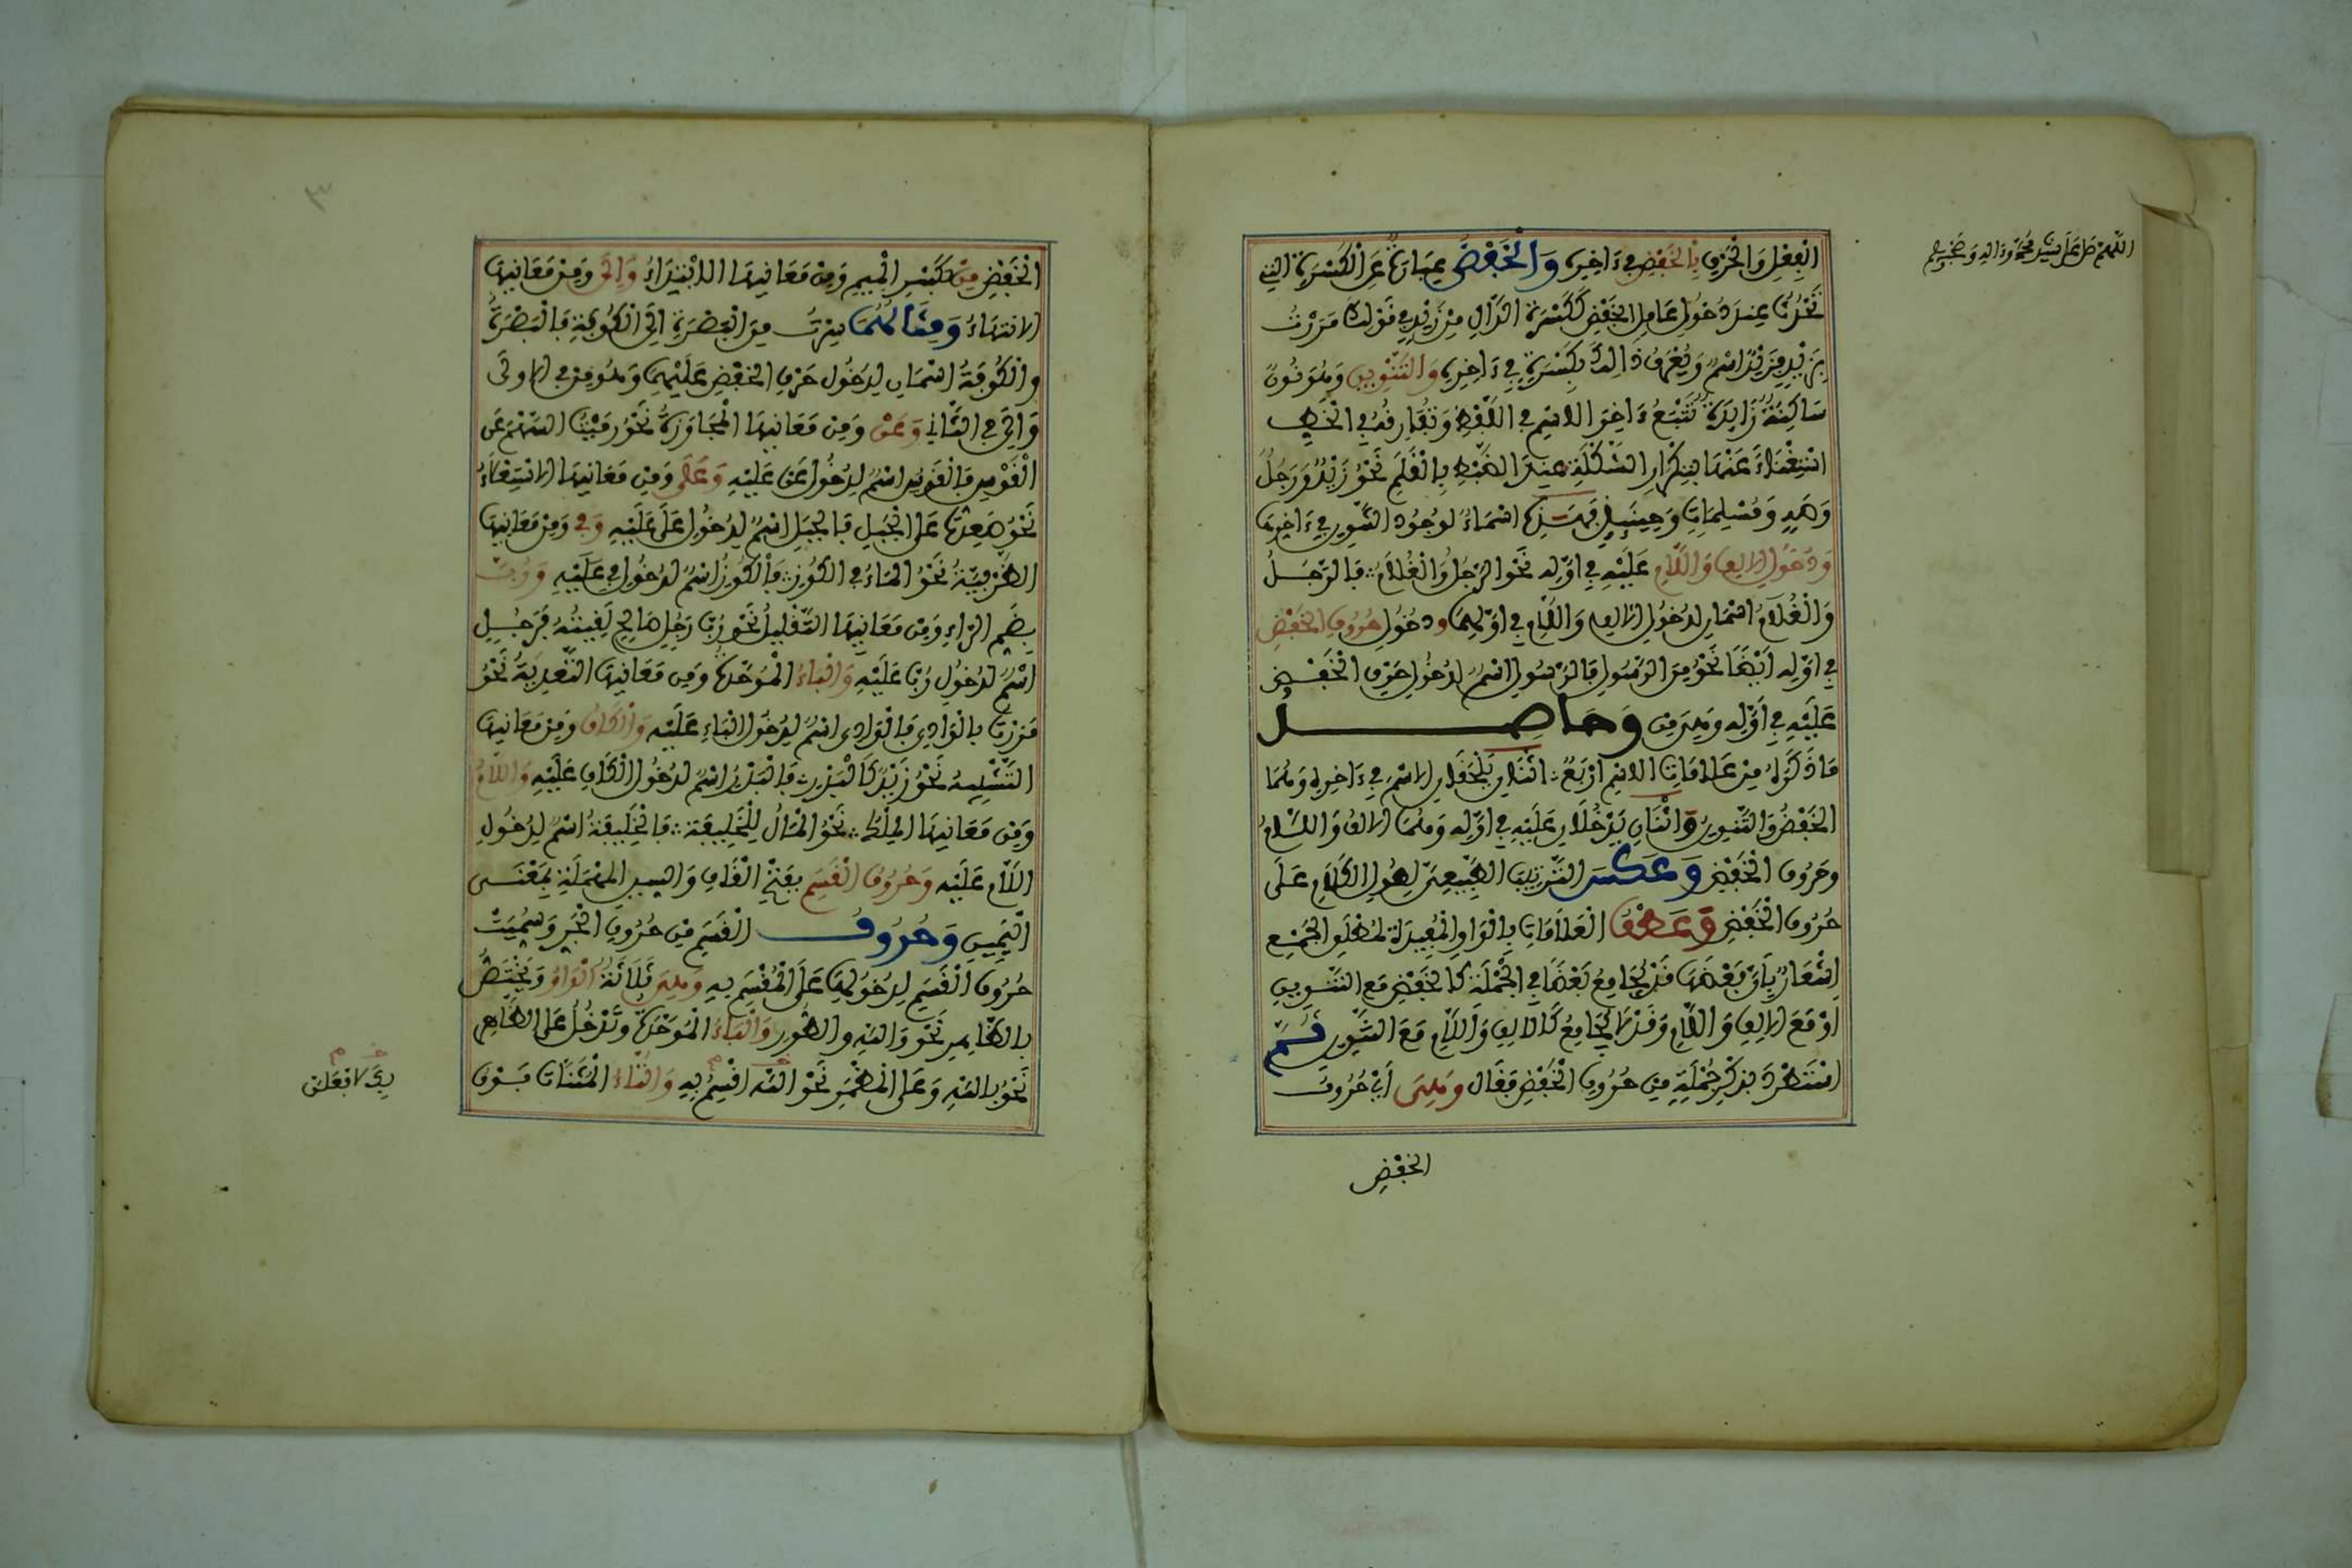 اللهم صل على سيدنا محمد وءاله وصحبه وسلم
الفعل والحرف بالخفض في ءاخره والخفض عبارة عن الكسرة التي
تحدث عند دخول عامل الخفض ككسرة الدال من زيد في قولك مررت
بزيد فزيد اسم ويعرف ذالك بكسرة في ءاخره والتنوين وهو نون
ساكنة زايدة تتبع ءاخر الاسم في اللفظ وتفارقه في الخط
استغناء عنها بتكرار الشكلة عند الضبط بالقلم نحو زيد ورجل
وصه ومسلمات وحينئذ فهذه اسماء لوجود التنوين في ءاخرها
ودخول الالف واللام عليه في اوله نحو الرجل والغلام فالرجل
والغلام اسمان لدخول الالف واللام في اولهما ودخول حروف الخفض
في اوله ايضا نحو من الرسول فالرسول اسم لدخول حرف الخفض
عليه في اوله وهو من وحاصل
ما ذكره من علامات الاسم اربع اثنان يلحقان الاسم في ءاخره وهما
الخفض والتنوين واثنان يدخلان عليه في اوله وهما الالف واللام
وحروف الخفض وعكس الترتيب الطبيعي لطول الكلام على
حروف الخفض وعطف العلامات بالواو المفيدة لمطلق الجمع
اشعار بان بعضها قد يجامع بعضا في الجملة كالخفض مع التنوين
او مع الالف واللام وقد لا يجامع كالالف واللام مع التنوين ثم
استطرد بذكر جملة من حروف الخفض فقال وهي اي حروف
الخفض
الخفض من بكسر الميم ومن معانيها الابتداء والى ومن معانيها
الانتهاء ومثالهما سرت من البصرة الى الكوفة فالبصرة
والكوفة اسمان لدخول حرف الخفض عليهما وهو من في الاولى
والى في الثاني وعن ومن معانيها المجاوزة نحو رميت السهم عن
القوس فالقوس اسم لدخول عن عليه وعلى ومن معانيها الاستعلاء
نحو صعدت على الجبل فالجبل اسم لدخول على عليه وفي ومن معانيها
الظرفية نحو الماء في الكوز فالكوز اسم لدخول في عليه ورب
بضم الراء ومن معانيها التقليل نحو رب رجل صالح لقيته فرجل
اسم لدخول رب عليه والباء الموحدة ومن معانيها التعدية نحو
مررت بالوادي فالوادي اسم لدخول الباء عليه والكاف ومن معانيها
التشبيه نحو زيد كالبدر فالبدر اسم لدخول الكاف عليه واللام
ومن معانيها الملك نحو المال للخليفة فالخليفة اسم لدخول
اللام عليه وحروف القسم بفتح القاف والسين المهملة بمعنى
اليمين وحروف القسم من حروف الجر وسميت
حروف القسم لدخولها على المقسم به وهي ثلاثة الواو وتختص
بالظاهر نحو والله والطور والباء الموحدة وتدخل على الظاهر
نحو بالله وعلى المضمر نحو الله اقسم به والتاء المثناة فوق